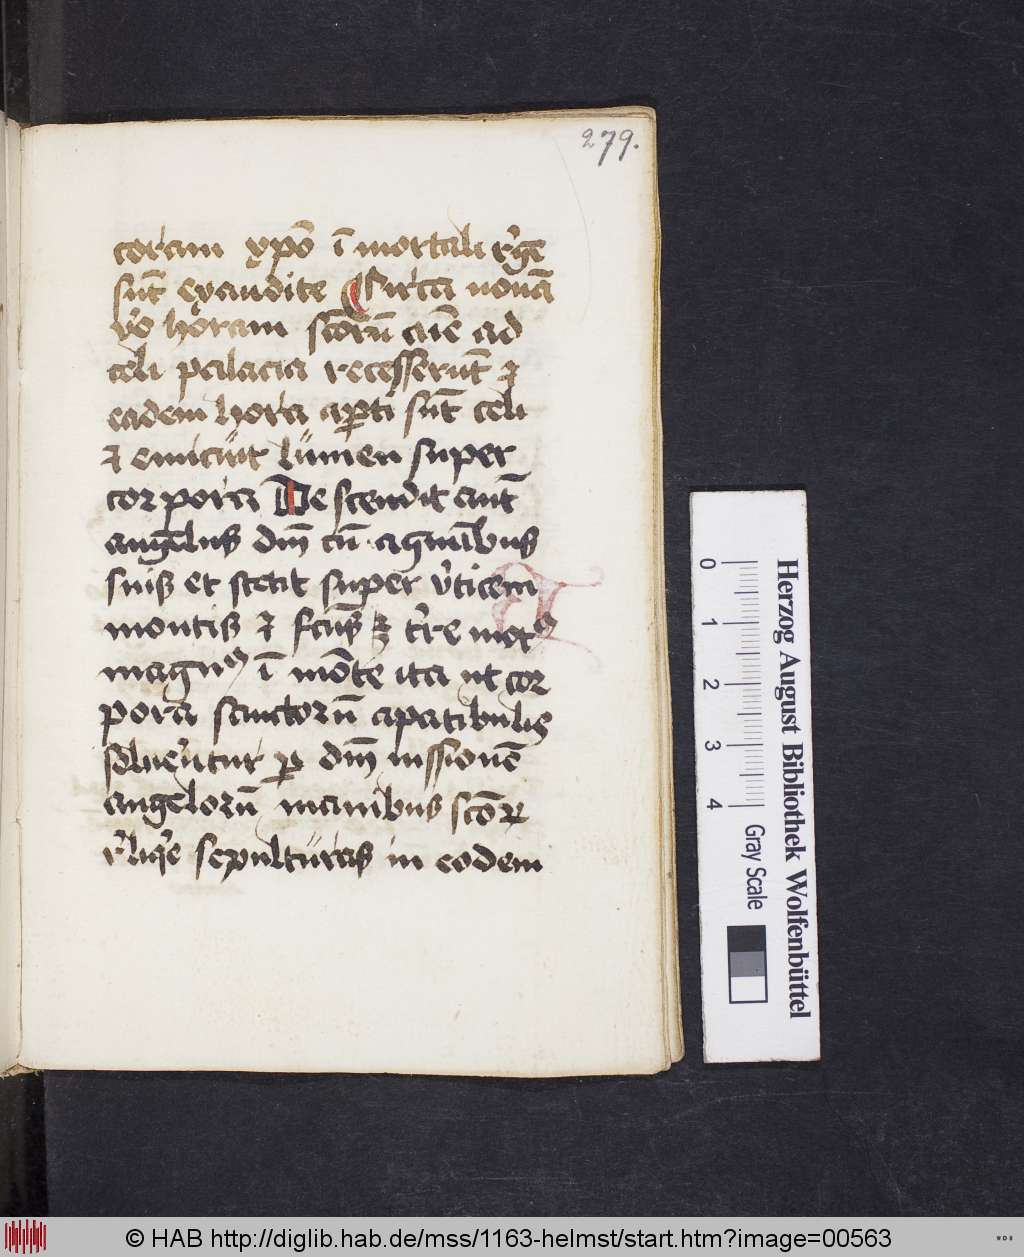 279.
coram xpō ī mortali r̉ge
sūt exaudite Circa nonā
v̉o horam sc̄orū aīe ad
celi palacia recesserūt ⁊
eadem hora aꝑti sūt celi
⁊ emicuit lumen super
corpora Descendit aut̄
angelus dm̄ cū agmībus
suis et stetit super v̉ticem
montis ⁊ fcūs ē t̉re motꝰ
magnꝰ ī mōte ita ut cor
pora sanctorū apatibulis
solue̓ntur ꝑ dm̄ iussionē
angelorū manibus sc̄oꝝ
r̉liq̉e sepulturas in eodem
Herzog August Bibliothek Wolfenbüttel
0 1 2 3 4
Gray Scale
© HAB http://diglib.hab.de/mss/1163-helmst/start.htm?image=00563